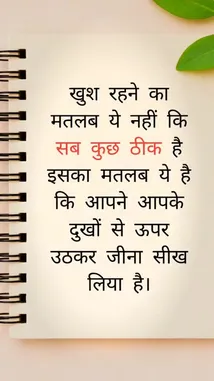 खुश रहने का
मतलब ये नहीं कि
सब कुछ ठीक है
इसका मतलब ये है
कि आपने आपके
दुखों से ऊपर
उठकर जीना सीख
लिया है।